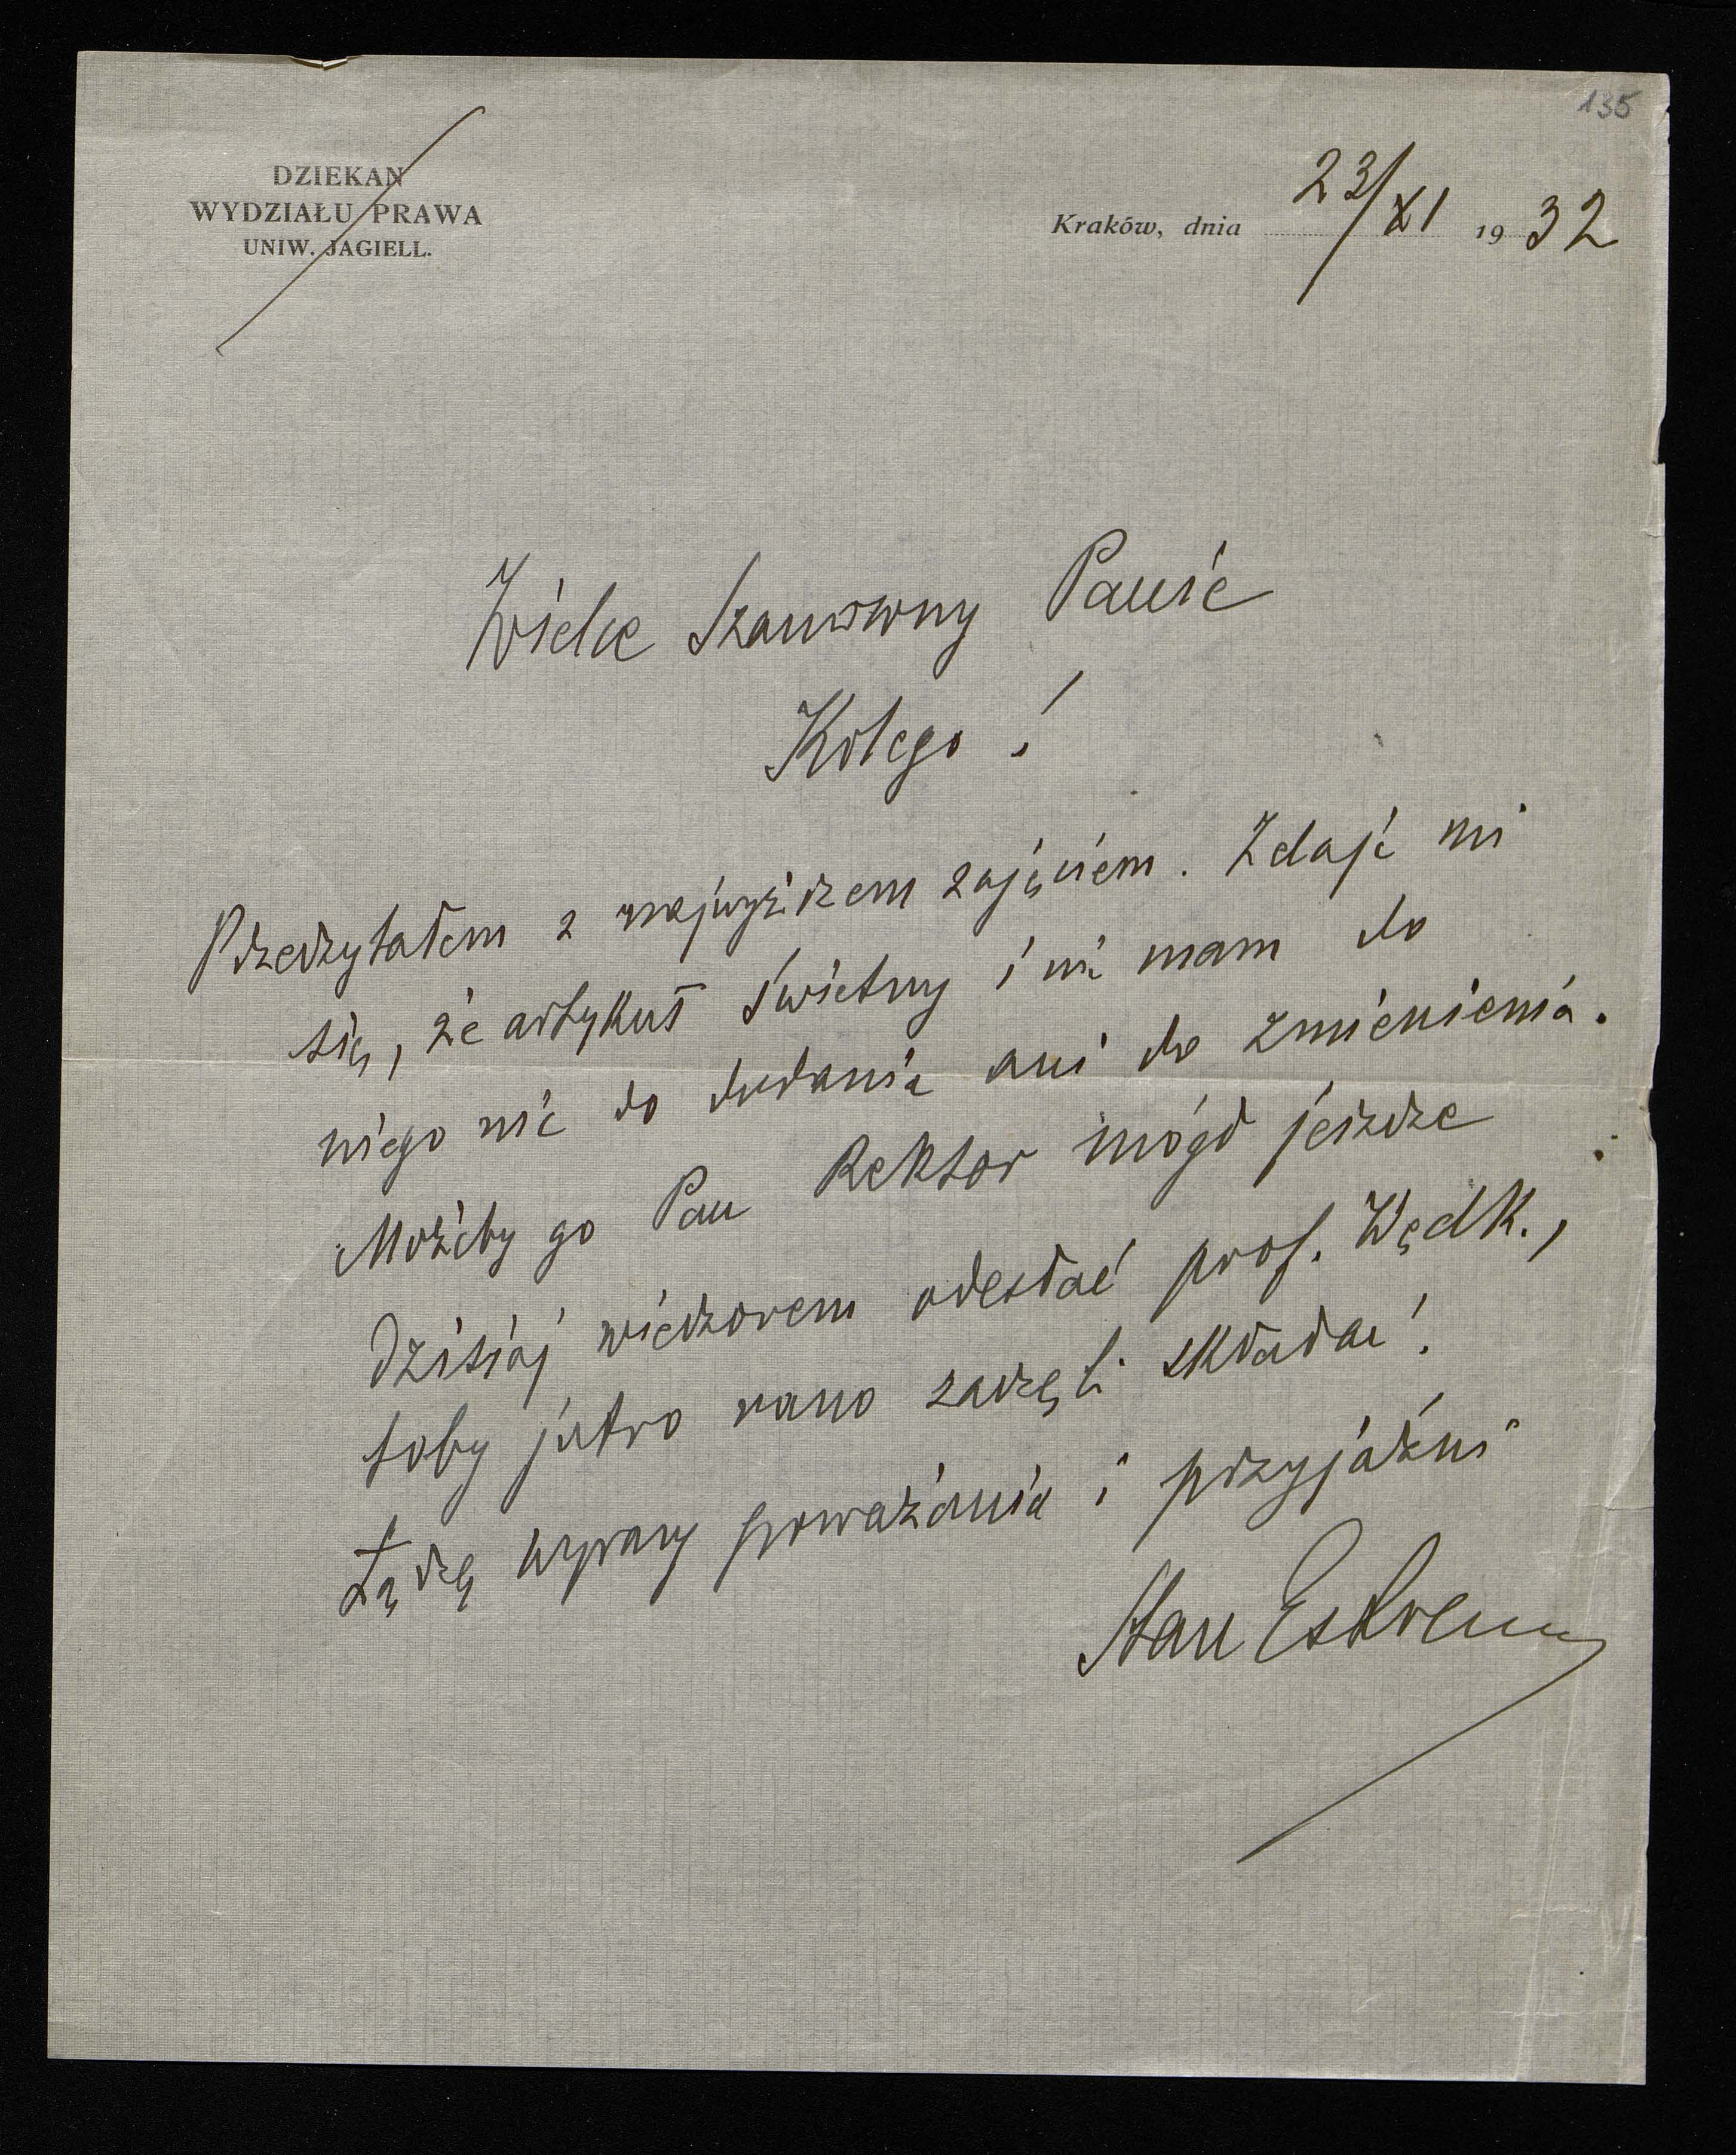 135
DZIEKAN
WYDZIAŁU PRAWA
UNIW. JAGIELL.
Kraków, dnia 23/XI 1932
Wielce Szanowny Panie
Kolego!
Przeczytałem z najwyższem zajęciem. Zdaje mi
się, że artykuł świetny i nie mam do
niego nic do dodania ani do zmienienia.
Możeby go Pan Rektor mógł jeszcze
dzisiaj wieczorem odesłać prof. Wędk.,
toby jutro rano zaczęli składać!
Łączę wyrazy poważania i przyjaźni
Stan Estreicher